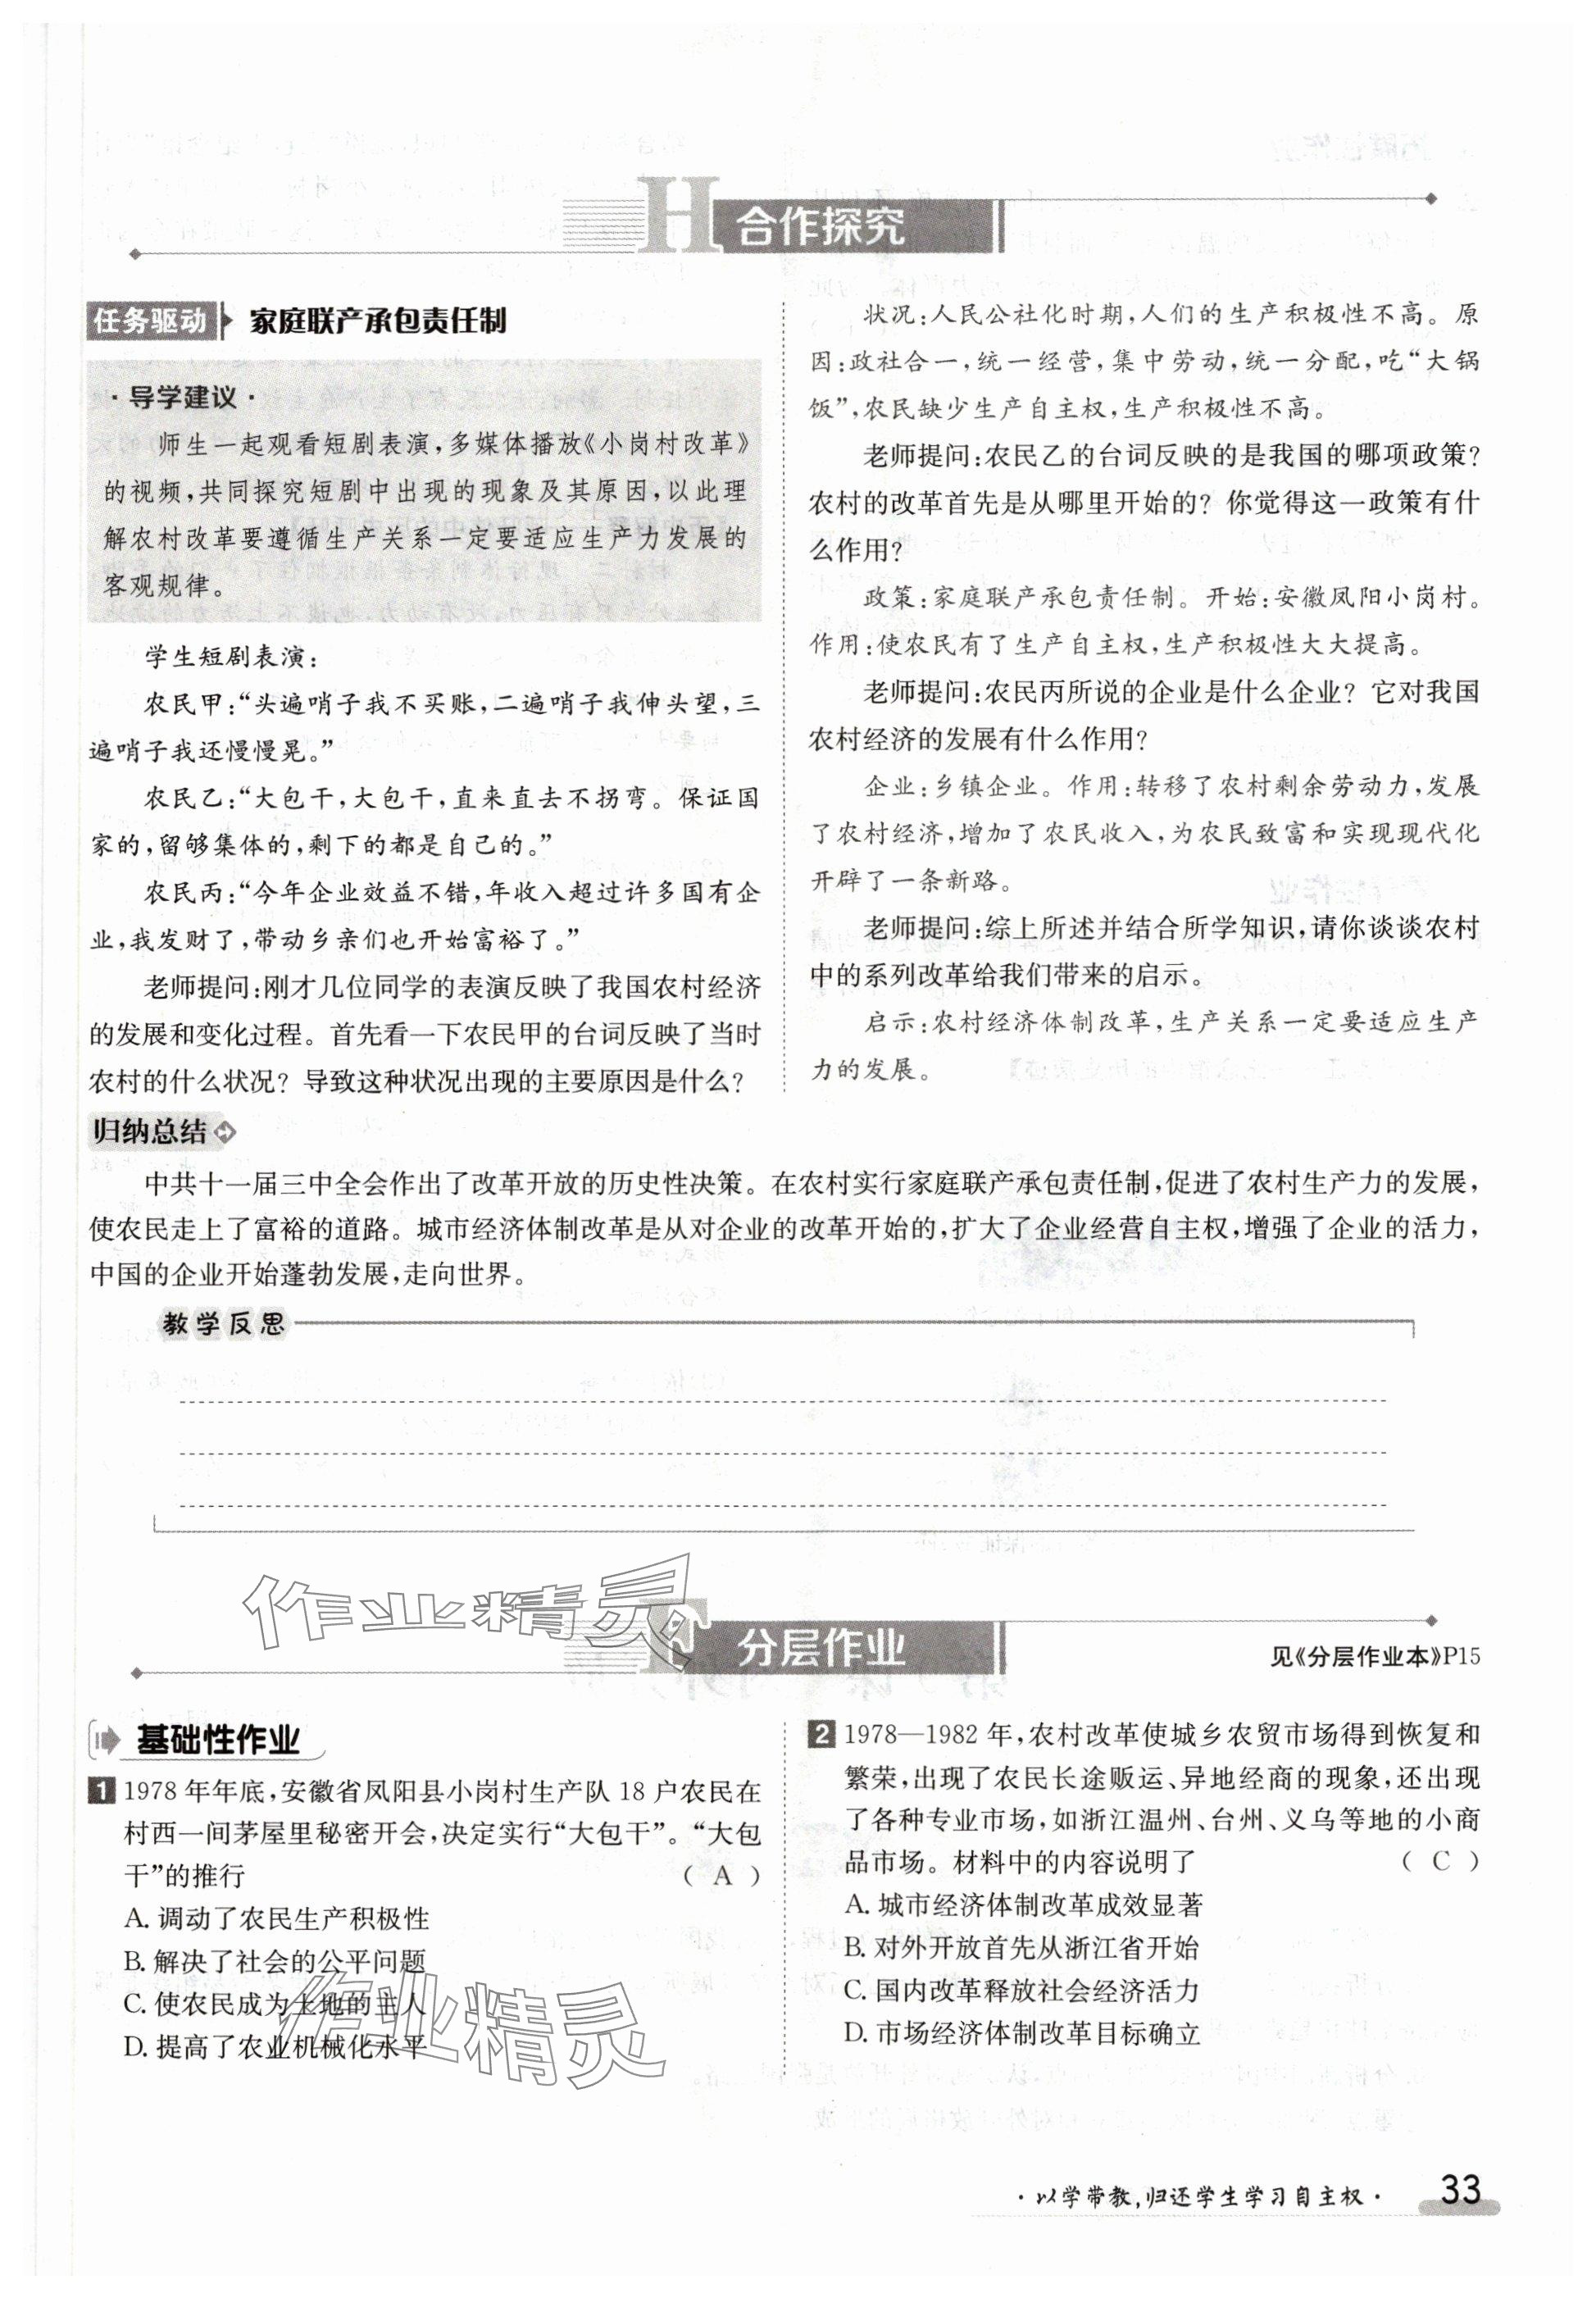 H 合作探究
任务驱动 家庭联产承包责任制
·导学建议·
师生一起观看短剧表演,多媒体播放《小岗村改革》
的视频,共同探究短剧中出现的现象及其原因,以此理
解农村改革要遵循生产关系一定要适应生产力发展的
客观规律。
学生短剧表演:
农民甲:“头遍哨子我不买账,二遍哨子我伸头望,三
遍哨子我还慢慢晃。”
农民乙:“大包干,大包干,直来直去不拐弯。保证国
家的,留够集体的,剩下的都是自己的。”
农民丙:“今年企业效益不错,年收入超过许多国有企
业,我发财了,带动乡亲们也开始富裕了。”
老师提问:刚才几位同学的表演反映了我国农村经济
的发展和变化过程。首先看一下农民甲的台词反映了当时
农村的什么状况?导致这种状况出现的主要原因是什么?
状况:人民公社化时期,人们的生产积极性不高。原
因:政社合一,统一经营,集中劳动,统一分配,吃“大锅
饭”,农民缺少生产自主权,生产积极性不高。
老师提问:农民乙的台词反映的是我国的哪项政策?
农村的改革首先是从哪里开始的?你觉得这一政策有什
么作用?
政策:家庭联产承包责任制。开始:安徽凤阳小岗村。
作用:使农民有了生产自主权,生产积极性大大提高。
老师提问:农民丙所说的企业是什么企业?它对我国
农村经济的发展有什么作用?
企业:乡镇企业。作用:转移了农村剩余劳动力,发展
了农村经济,增加了农民收入,为农民致富和实现现代化
开辟了一条新路。
老师提问:综上所述并结合所学知识,请你谈谈农村
中的系列改革给我们带来的启示。
启示:农村经济体制改革,生产关系一定要适应生产
力的发展。
归纳总结
中共十一届三中全会作出了改革开放的历史性决策。在农村实行家庭联产承包责任制,促进了农村生产力的发展,
使农民走上了富裕的道路。城市经济体制改革是从对企业的改革开始的,扩大了企业经营自主权,增强了企业的活力,
中国的企业开始蓬勃发展,走向世界。
教学反思
作业精灵
分层作业
见《分层作业本》P15
基础性作业
1 1978年年底,安徽省凤阳县小岗村生产队18户农民在
村西一间茅屋里秘密开会,决定实行“大包干”。“大包
干”的推行 ( A )
A. 调动了农民生产积极性
B. 解决了社会的公平问题
C. 使农民成为土地的主人
D. 提高了农业机械化水平
作业精灵
2 1978—1982年,农村改革使城乡农贸市场得到恢复和
繁荣,出现了农民长途贩运、异地经商的现象,还出现
了各种专业市场,如浙江温州、台州、义乌等地的小商
品市场。材料中的内容说明了 ( C )
A. 城市经济体制改革成效显著
B. 对外开放首先从浙江省开始
C. 国内改革释放社会经济活力
D. 市场经济体制改革目标确立
·以学带教,归还学生学习自主权·
33